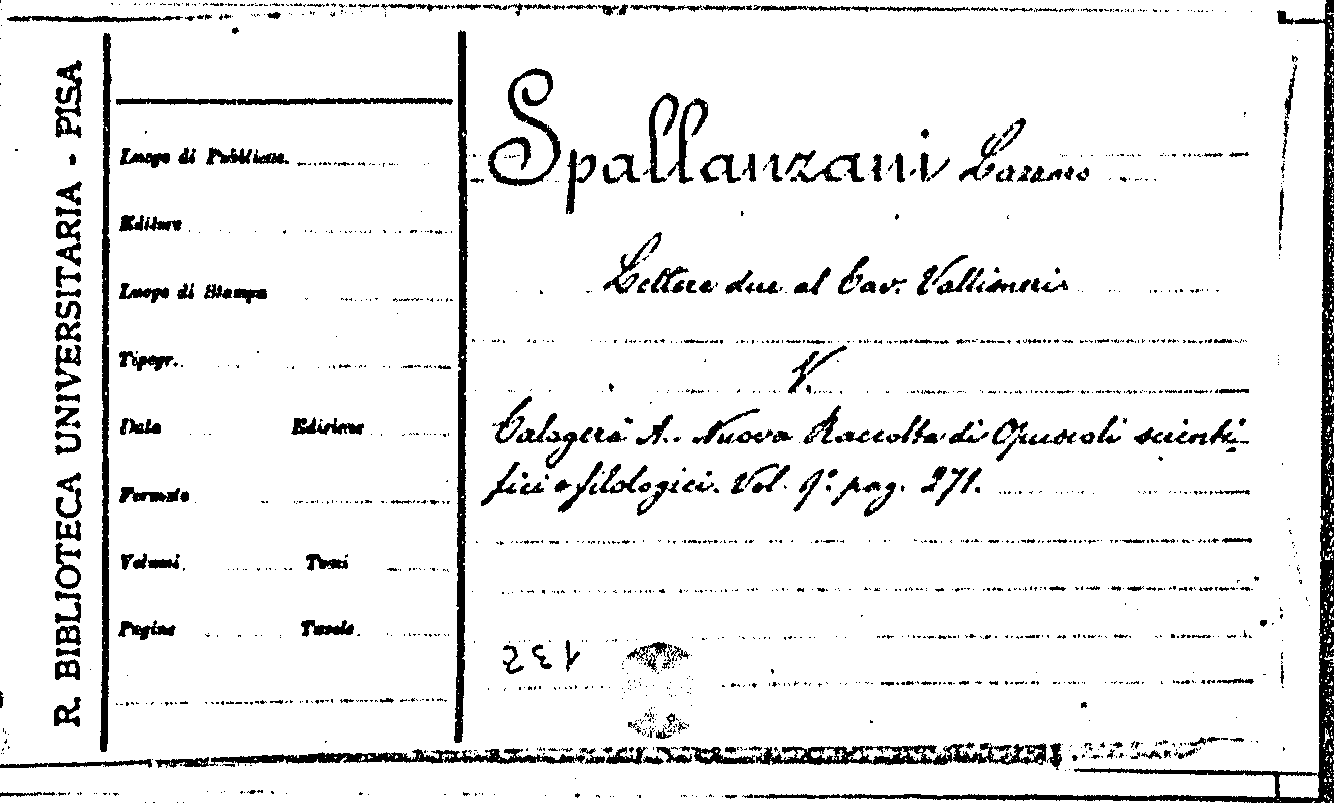 R. BIBLIOTECA UNIVERSITARIA - PISA
Luogo di Pubblicaz.
Editore
Luogo di Stampa
Tipogr.
Data Edizione
Formato
Volumi Tomi
Pagine Tavole
Spallanzani Lazzaro
Lettere due al Cav. Vallisneris
V.
Calogerà A. Nuova Raccolta di Opuscoli scienti-
fici e filologici. Vol. 9º pag. 271.
132